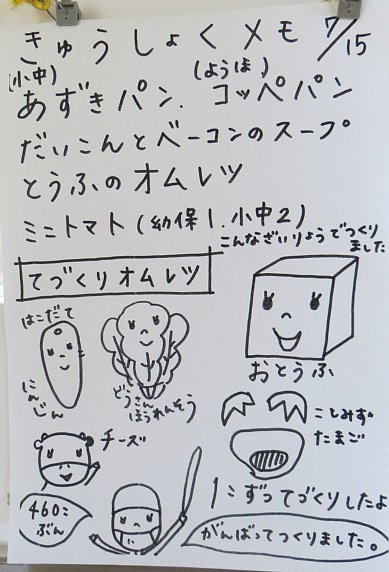 きゅうしょくメモ 7/15
(小中) (ようほ)
あずきパン. コッペパン
だいこんとベーコンのスープ
とうふのオムレツ
ミニトマト(幼保1.小中2)
こんなざいりょうでつくりました
てづくりオムレツ
はこだて
にんじん
どうさん
ほうれんそう
おとうふ
チーズ
たまご
1こずつてづくりしたよ
460こ
ぶん
がんばってつくりました。